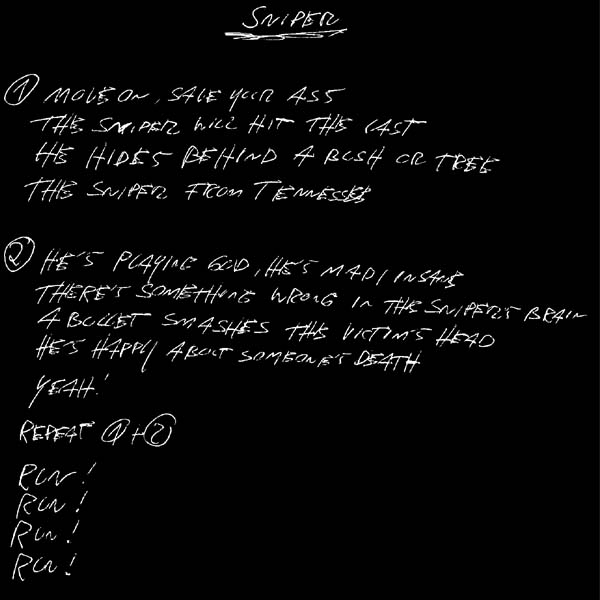 SNIPER
① MOVE ON, SAVE YOUR ASS
THE SNIPER WILL HIT THE LAST
HE HIDES BEHIND A BUSH OR TREE
THE SNIPER FROM TENNESSEE
② HE'S PLAYING GOD, HE'S MAD/INSANE
THERE'S SOMETHING WRONG IN THE SNIPER'S BRAIN
A BULLET SMASHES THE VICTIM'S HEAD
HE'S HAPPY ABOUT SOMEONE'S DEATH
YEAH!
REPEAT ①+②
RUN!
RUN!
RUN!
RUN!